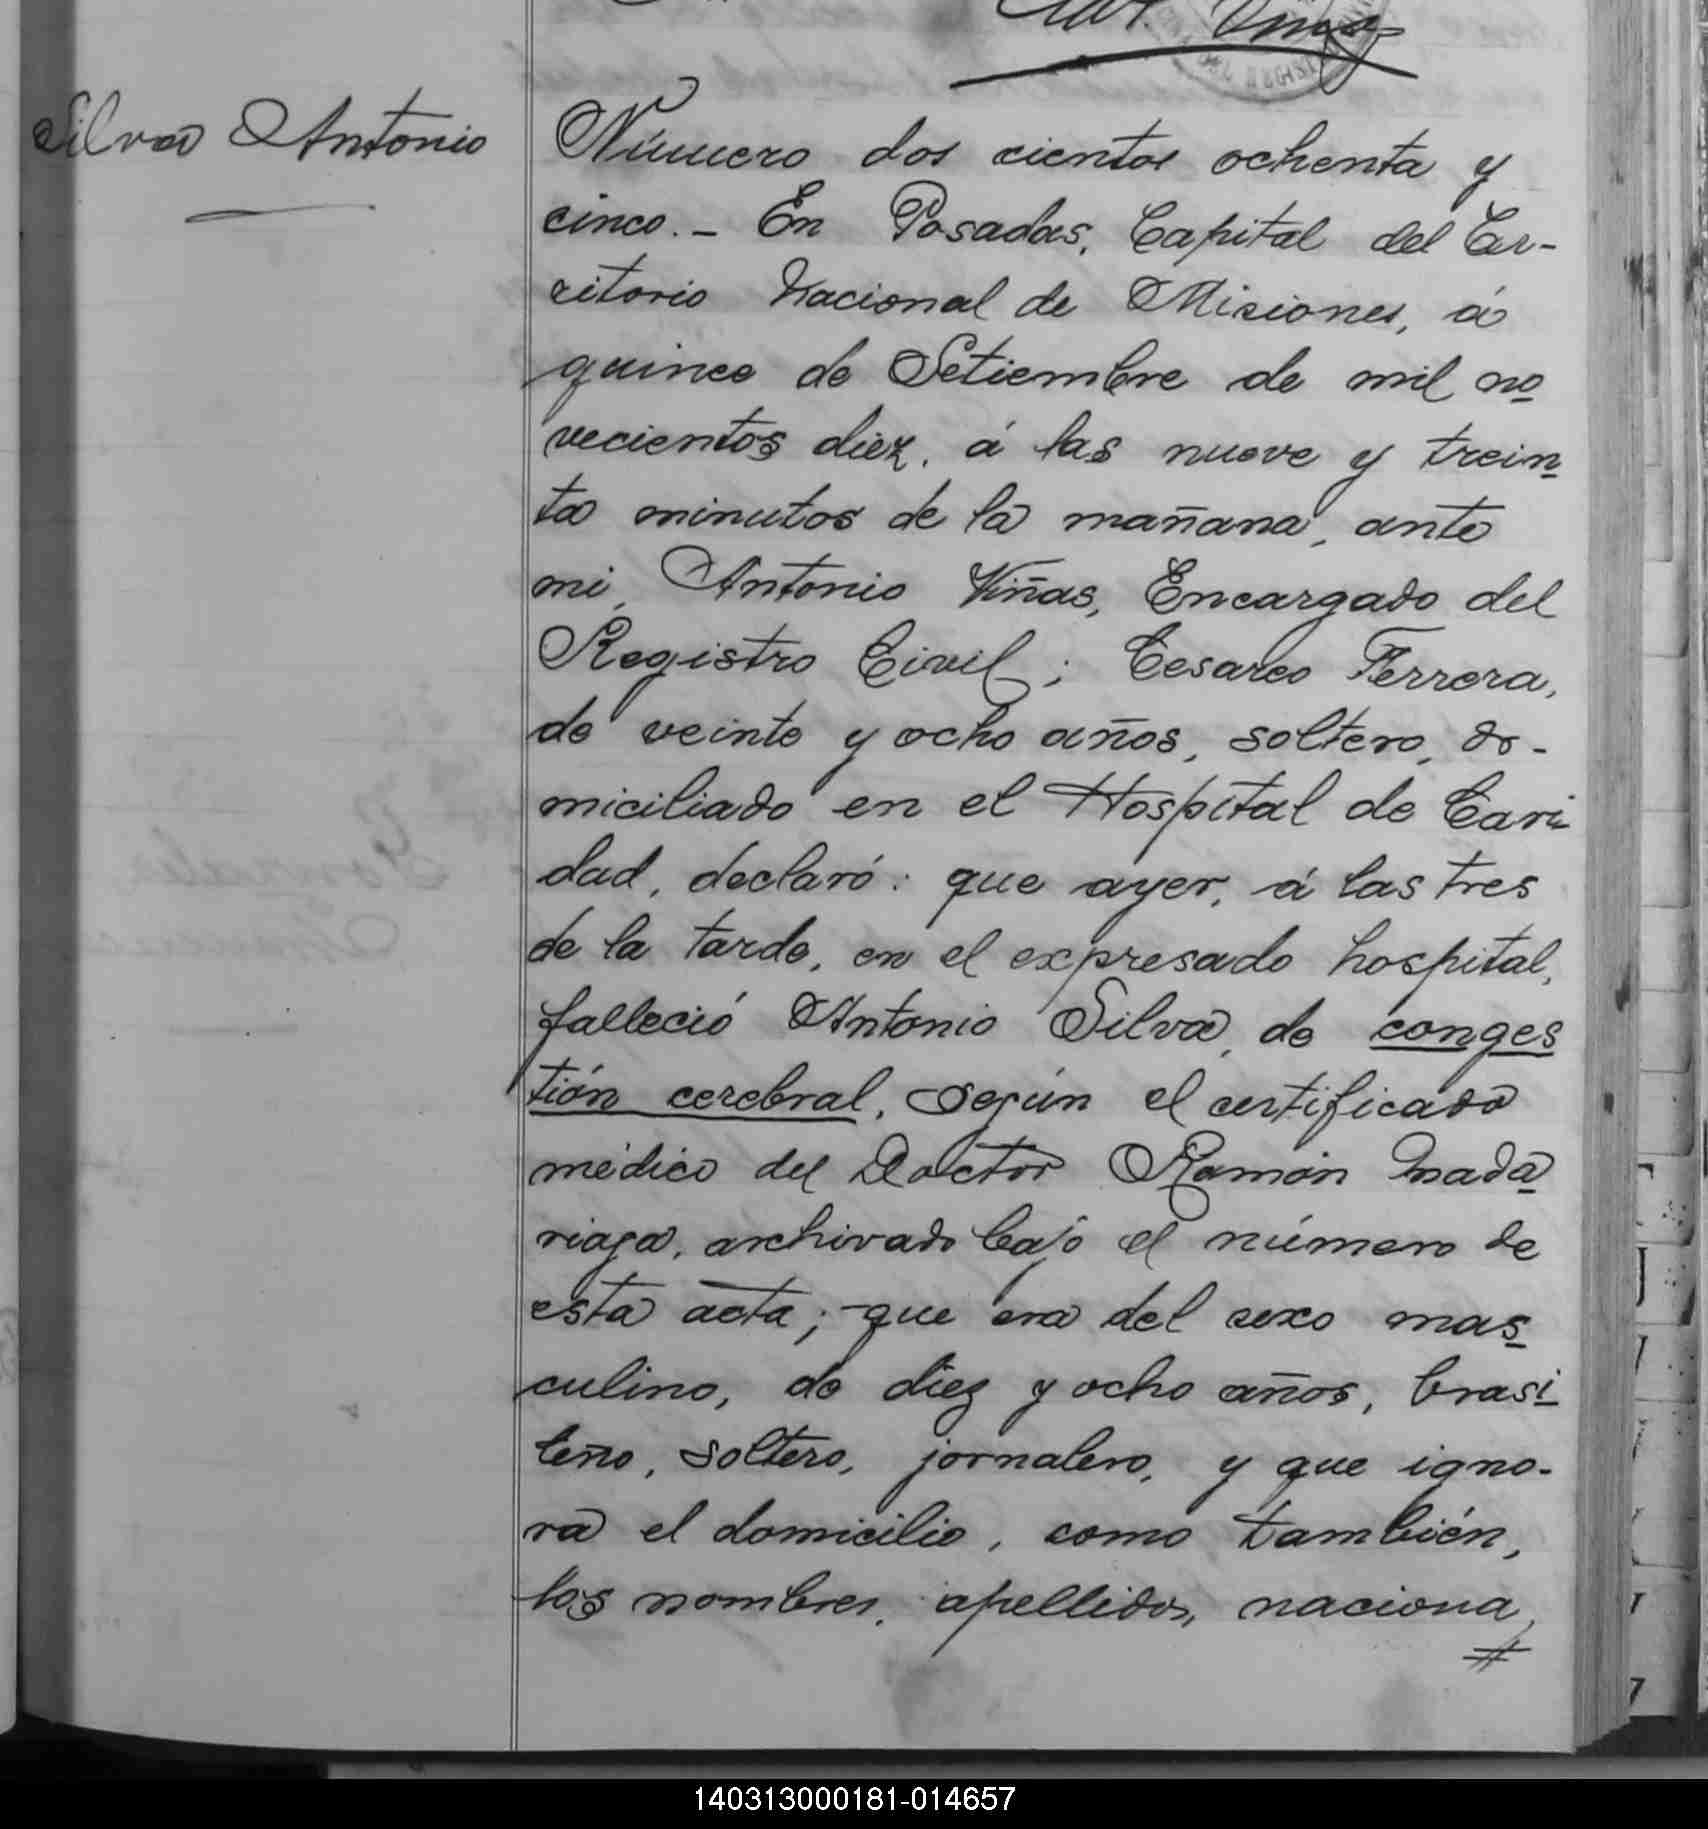 Ant. Viñas
DEL REGIS
Silva Antonio
Número dos cientos ochenta y
cinco. - En Posadas, Capital del Ter-
ritorio Nacional de Misiones, á
quince de Setiembre de mil no
vecientos diez, á las nueve y trein
ta minutos de la mañana, ante
mi, Antonio Viñas, Encargado del
Registro Civil; Cesareo Ferrera,
de veinte y ocho años, soltero, do-
miciliado en el Hospital de Cari
dad, declaró: que ayer, á las tres
de la tarde, en el expresado hospital,
falleció Antonio Silva, de conges
tión cerebral, según el certificado
médico del Doctor Ramón Mada
riaga, archivado bajo el número de
esta acta; que era del sexo mas
culino, de diez y ocho años, brasi
leño, soltero, jornalero, y que igno-
ra el domicilio, como también,
los nombres, apellidos, naciona
140313000181-014657